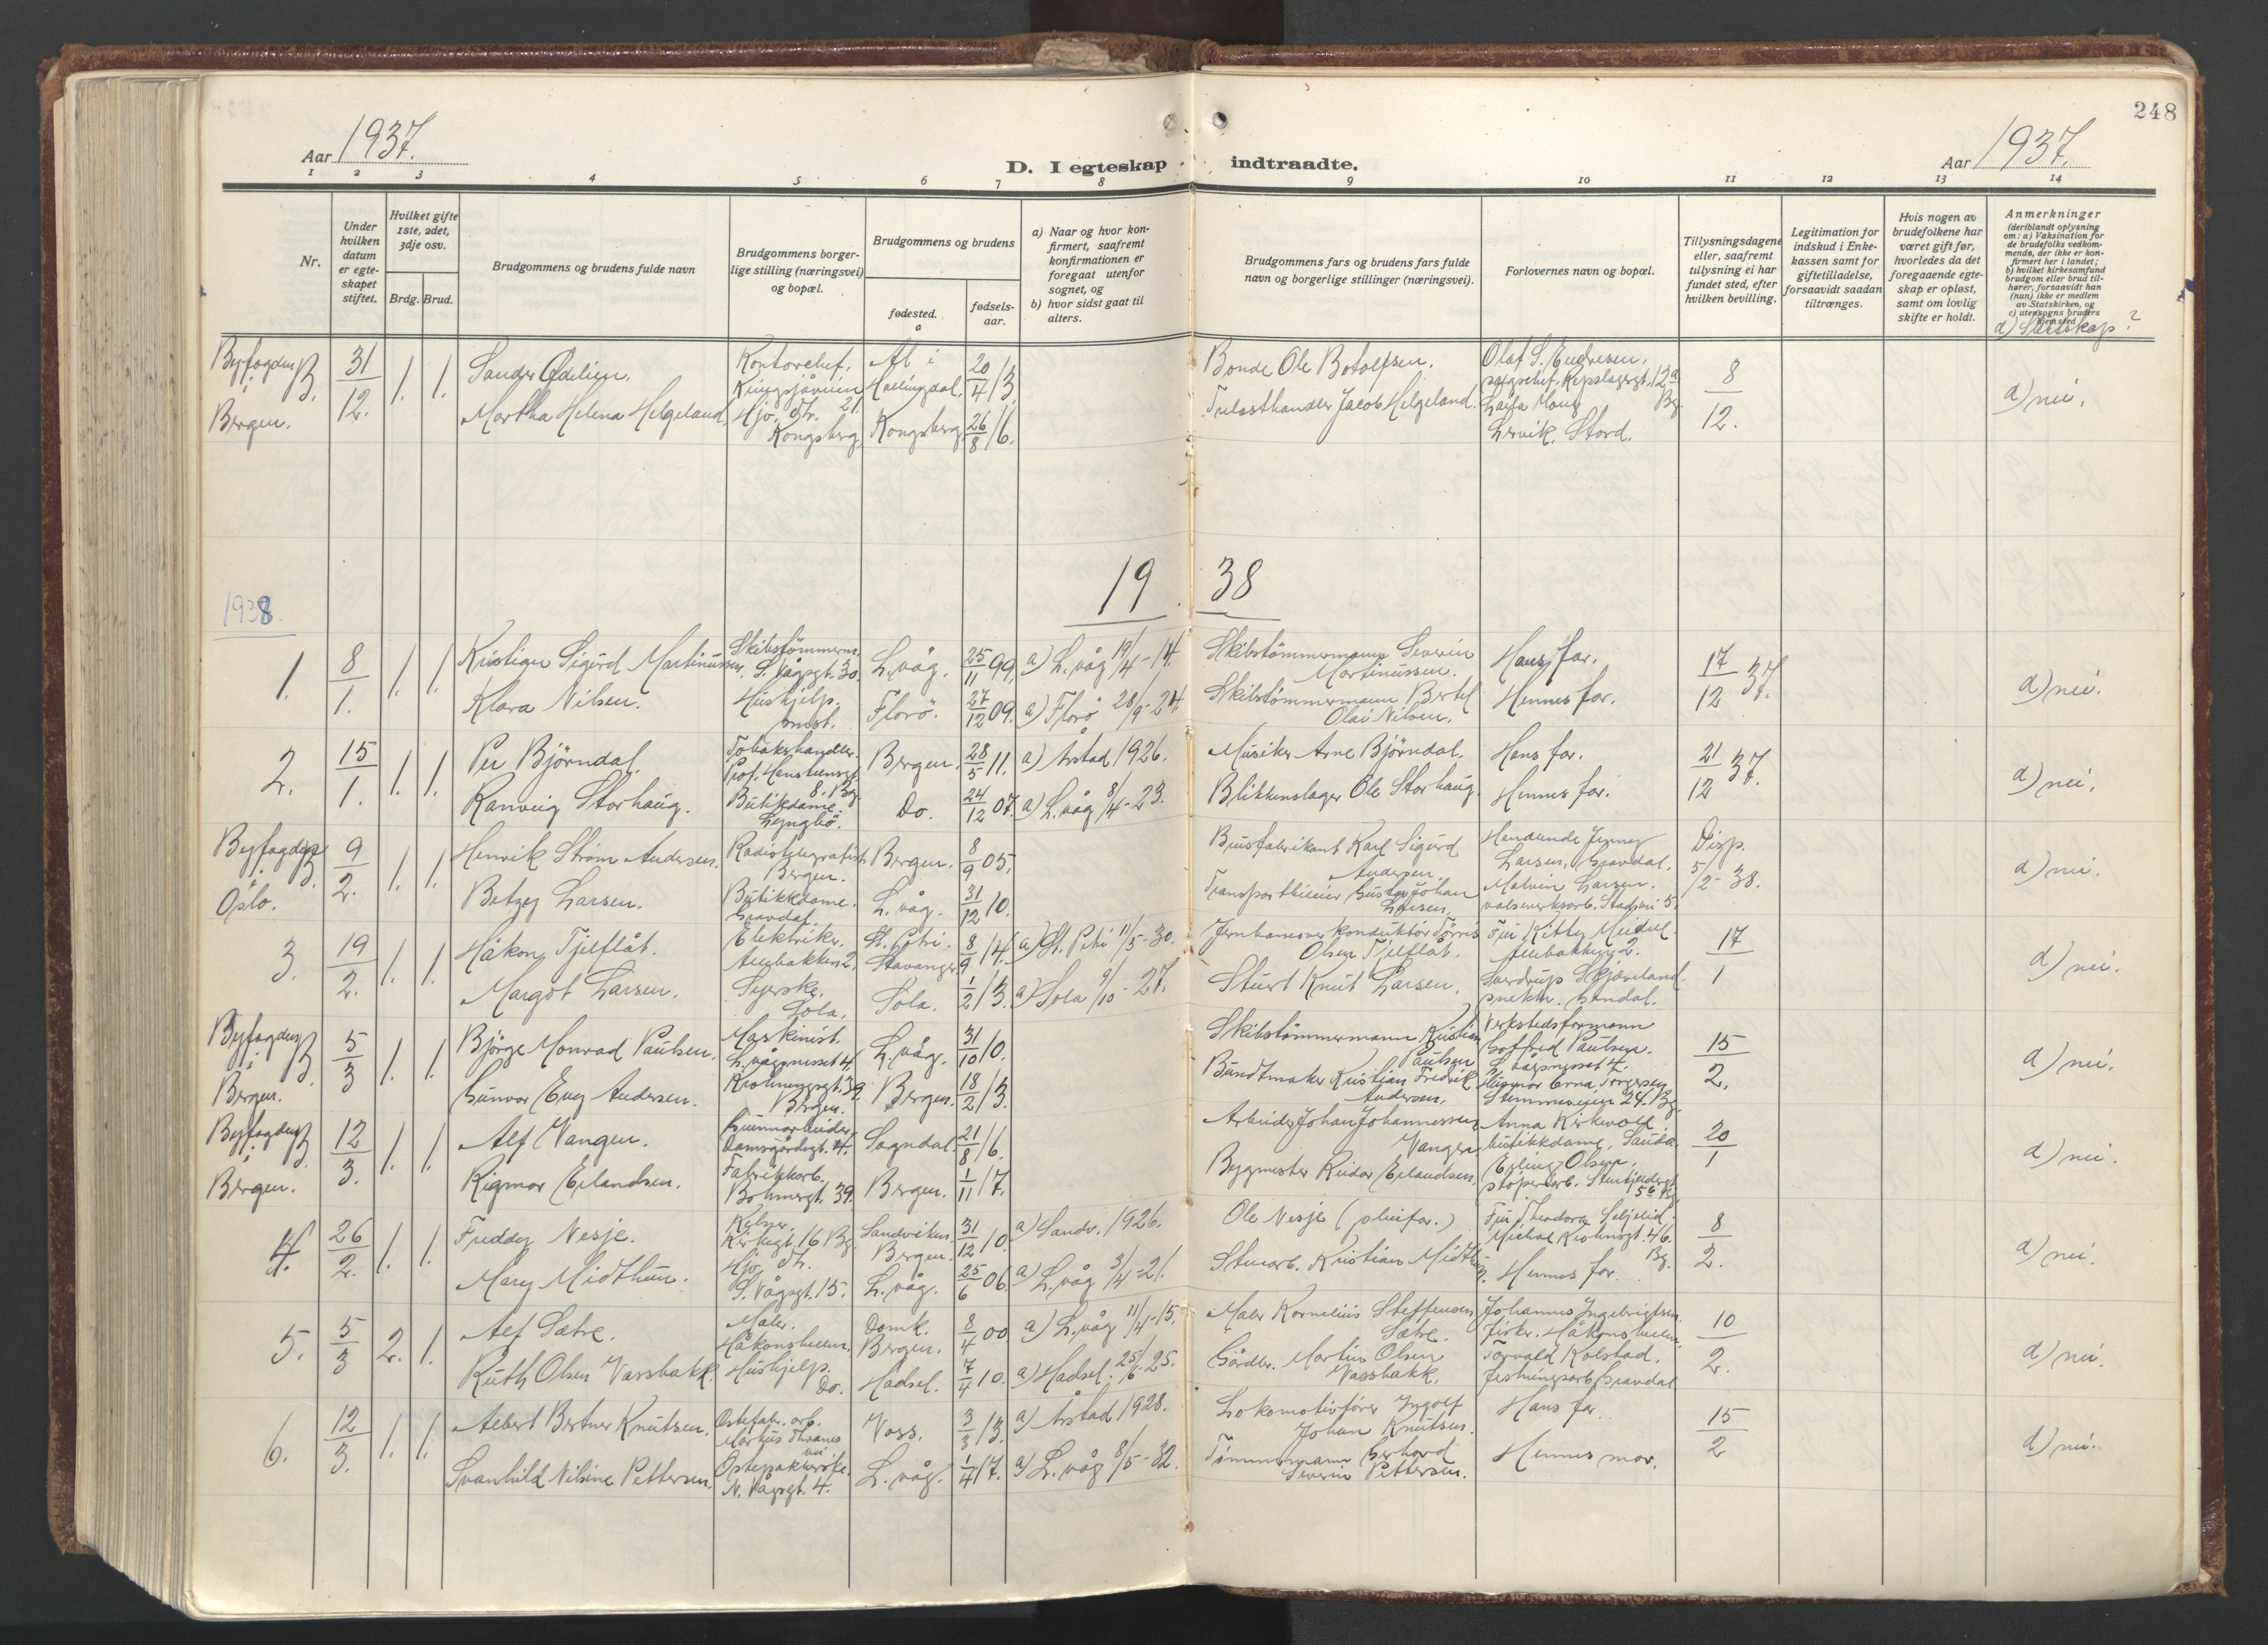 248
Aar 1937.
D. I egteskap indtraadte.
Aar 1937.
1 2 3 4 5 6 7 8 9 10 11 12 13 14
Nr.
Under hvilken datum er egteskapet stiftet.
Hvilket gifte 1ste, 2det, 3dje osv.
Brdg. Brud.
Brudgommens og brudens fulde navn
Brudgommens borgerlige stilling (næringsvei) og bopæl.
Brudgommens og brudens
fødested.
a
fødselsaar.
a) Naar og hvor konfirmert, saafremt konfirmationen er foregaat utenfor sognet, og
b) hvor sidst gaat til alters.
Brudgommens fars og brudens fars fulde navn og borgerlige stillinger (næringsvei).
Forlovernes navn og bopæl.
Tillysningsdagene eller, saafremt tillysning ei har fundet sted, efter hvilken bevilling.
Legitimation for indskud i Enkekassen samt for giftetilladelse, forsaavidt saadan tiltrænges.
Hvis nogen av brudefolkene har været gift før, hvorledes da det foregaaende egteskap er opløst, samt om lovlig skifte er holdt.
Anmerkninger
(deriblandt oplysning om: a) Vaksination for de brudefolks vedkommende, der ikke er konfirmert her i landet;
b) hvilket kirkesamfund brudgom eller brud tilhører, forsaavidt han (hun) ikke er medlem av Statskirken, og
c) utensogns bruders hjemsted
d) Slektskap?
Byfogden i B. Bergen. 31/12. 1. 1.
Sander Ødelien. Kontorchef. Kringsjåveien 21. Ål i Hallingdal. 20/4 13. Bonde Ole Botolfsen. Olaf S. Engresen. 8/12. d) nei.
Martha Helena Helgeland. Hjv. dtr. Kongsberg. Kongsberg. 26/8 16. Trelasthandler Jacob Helgeland. Lervik. Stord.
19 38
1938.
1. 8/1. 1. 1.
Kristian Sigurd Martinussen. Skibstömmerm. S. Vågsgt. 30. L.våg. 25/11 99. a) L.våg 19/4-14. Skibstömmermann Severin Martinussen. Hans far. 17/12 37. d) nei.
Klara Nilsen. Hushjelp. Florö. 27/12 09. a) Florö 28/9-24. Skibstömmermann Bertel Olai Nilsen. Hennes far.
2. 15/1. 1. 1.
Per Björndal. Tobakshandler. Prof. Hansteensgt. 8. Bg. Bergen. 28/5 11. a) Årstad 1926. Musiker Arne Björndal. Hans far. 21/12 37. d) nei.
Ranveig Storhaug. Butikdame. Lyngbö. Do. 24/12 07. a) L.våg 8/4-23. Blikkenslager Ole Storhaug. Hennes far.
Byfogden i B. Oslo. 9/2. 1. 1.
Henrik Strøm Andersen. Radiotelegrafist Bergen. Bergen. 8/9 05. Brusfabrikant Karl Sigurd Andersen. Handlende Jenny Larsen, Gravdal. Disp. 5/2-38. d) nei.
Betzy Larsen. Butikkdame. Gravdal. L.våg. 31/12 10. Gustav Johan Larsen. Malvin Larsen. valseverksarb. Stadsvei 5
3. 19/2. 1. 1.
Håkon Tjelflåt. Elektriker. St. Petri. Stavanger 8/9 14. a) St. Petri 11/5-30. Jernbaneoverkonduktör Tönnis Olsen Tjelflåt. Fru Kitty 17/1 d) nei.
Margot Larsen. Syerske. Sola. Sola. 1/2 13. a) Sola 9/10-27. Knut Larsen. Sverdrup Skjæveland.
Byfogden i B. Bergen. 5/3 1. 1.
Björge Monrad Paulsen. Maskinist. L.vågsnesset 4. L.våg. 31/10 10. Skibstömmermann Kristian Paulsen Verkstedsformann Gotfred Paulsen. L.vågsnesset 7. 15/2. d) nei.
Gunvor Eng Andersen. Krohnengsgt. 39. Bergen. Bergen. 18/2 13. Buntmaker Kristian Fredrik Andersen. Husmor Erna Torgersen Stemmeveien 24. Bg.
Byfogden i B. Bergen. 12/3. 1. 1.
Alf Vangen. Gummiarbeider. Damsgårdsgt. 4. Sogndal. 21/8 16. Arbeider Johan Johannessen Vangen Anna Kirkvold butikkdame. Sauda 20/1 d) nei.
Rigmor Erlandsen. Fabrikkarb. Bohmergt. 39. Bergen. 1/11 17. Bygmester Reidar Erlandsen. Erling Olsen.
4. 26/2. 1. 1.
Freddy Nesje. Kelner. Kirkegt. 16 Bg. Sandviken Bergen. 31/12 10. a) Sandv. 1926. Ole Nesje (pleiefar.) Fru Theodora Seljelid. Michal Krohnsgt. 46. Bg. 8/2. d) nei.
Mary Midthun. Hjv. dtr. S. Vågsgt. 15. L.våg. 25/6 06. a) L.våg 3/4-21. Stuerarb. Kristian Midthun. Hennes far.
5. 5/3 2. 1.
Alf Sætre. Maler. Håkonshellen. Domk. Bergen. 8/4 00 a) L.våg 11/4-15. Maler Kornelius Steffensen Sætre. Johannes Ingebrigtsen. fisker. Håkonshellen. 10/2. d) nei.
Ruth Olsen Vassbakk. Hushjelp. Do. Hadsel. 7/4 10. a) Hadsel. 25/6-25. Gårdbr. Martin Olsen Vassbakk. Torvald Kolstad. festningsarb. Gravdal
6. 12/3. 1. 1.
Albert Berner Knutsen. Ostefabr. arb. Markus Thranes vei. Voss. 3/3 13. a) Årstad 1928. Lokomotivförer Ingolf Johan Knutsen. Hans far. 15/2 d) nei.
Svanhild Nilsine Pettersen. Ostepakkerske. N. Vågsgt. 4. L.våg. 1/4 17. a) L.våg 8/5-32. Tömmermann Gerhard Severin Pettersen. Hennes mor.